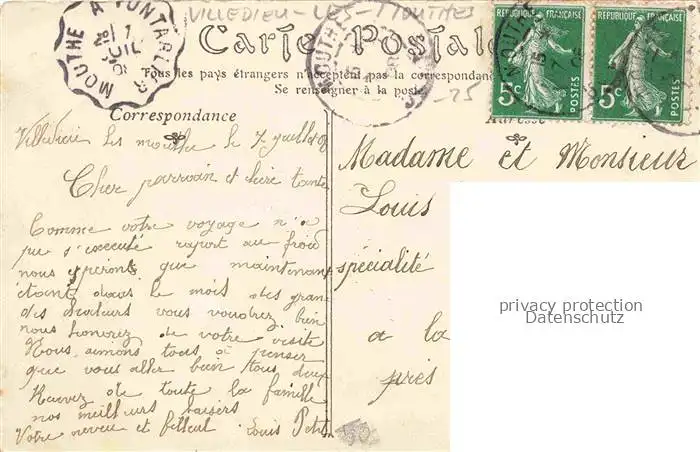 VILLEDIEU-LES-MOUTHES
MOUTHE A PONTARLIER
RÉPUBLIQUE FRANÇAISE
5c POSTES
RÉPUBLIQUE FRANÇAISE
5c POSTES
Carte Postale
Tous les pays étrangers n'acceptent pas la correspondance
Se renseigner à la poste
25
Correspondance
Adresse
Villedieu les mouthe le 7 juillet
Cher parrain et chère tante
Comme votre voyage n'a
pu s'exécuté raport au froid
nous esperont que maintenant
étant dans le mois des grandes
des chaleurs vous voudrez bien
nous honorez de votre visite
Nous aimons tous à penser
que vous aller bien tous deux
Recevez de toute la famille
nos meilleurs baisers
Votre neveu et filleul Louis Petit
Madame et Monsieur
Louis
spécialité
a la
près
privacy protection
Datenschutz